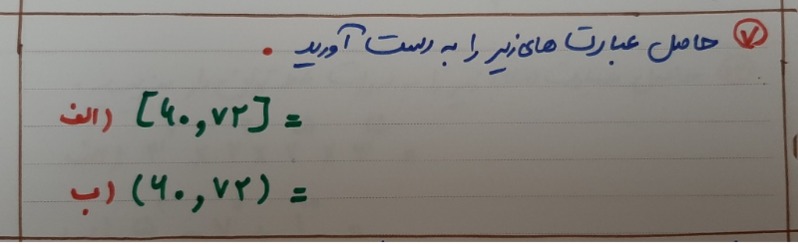 ۷ حاصل عبارت های زیر را به دست آورید.
الف) [۶۰,۷۲] =
ب) (۶۰,۷۲) =